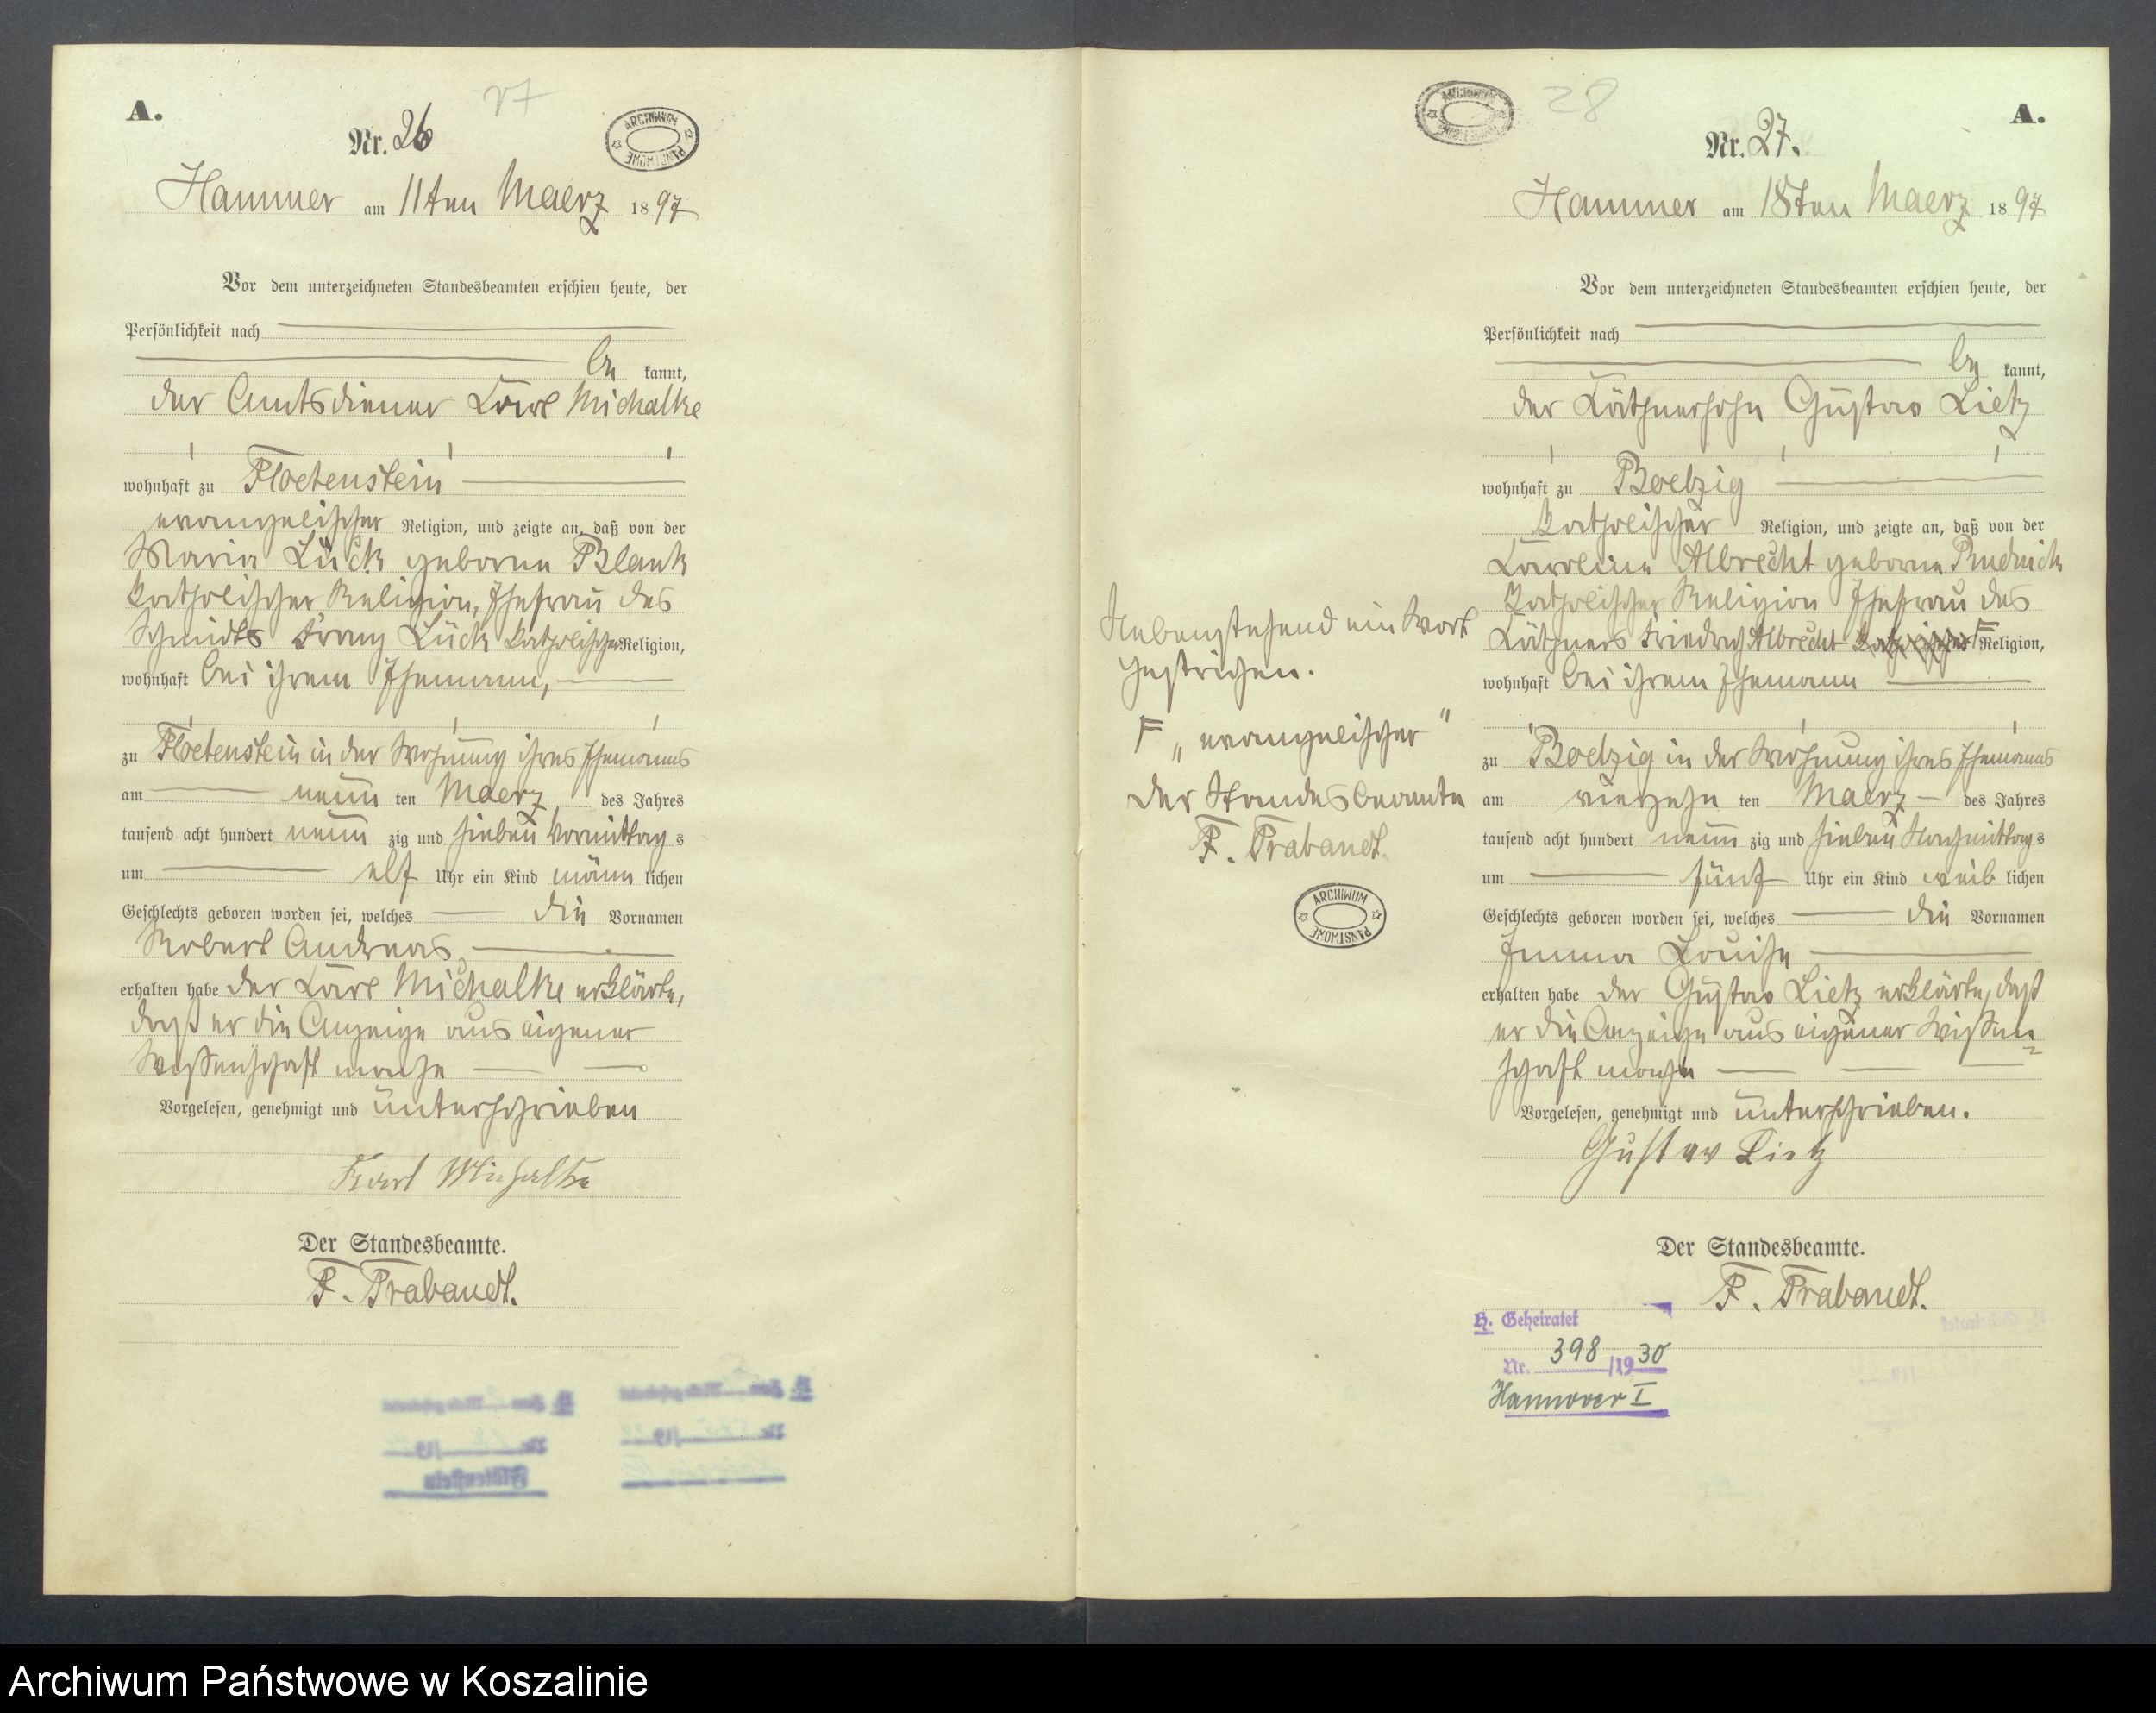 A.
27
Nr. 26
ARCHIWUM PAŃSTWOWE
Hammer am 11ten Maerz 1897
Vor dem unterzeichneten Standesbeamten erschien heute, der
Persönlichkeit nach
be kannt,
der Amtsdiener Karl Michalke
wohnhaft zu Floetenstein
evangelischer Religion, und zeigte an, daß von der
Maria Lück geborne Blank
katholischer Religion, Ehefrau des
Schmidts Franz Lück katholischer Religion,
wohnhaft bei ihrem Ehemann,
zu Floetenstein in der Wohnung ihres Ehemanns
am neun ten Maerz des Jahres
tausend acht hundert neun zig und sieben Vormittag s
um elf Uhr ein Kind männ lichen
Geschlechts geboren worden sei, welches die Vornamen
Robert Andreas,
erhalten habe der Karl Michalke erklärte,
daß er die Anzeige aus eigener
Wissenschaft mache
Vorgelesen, genehmigt und unterschrieben
Karl Michalke
Der Standesbeamte.
F. Trabandt.
Nebenstehend ein Wort
gestrichen.
F „evangelischer"
Der Standesbeamte
F. Trabandt.
ARCHIWUM PAŃSTWOWE
ARCHIWUM PAŃSTWOWE
28
A.
Nr. 27.
Hammer am 18ten Maerz 1897
Vor dem unterzeichneten Standesbeamten erschien heute, der
Persönlichkeit nach
be kannt,
der Käthnersohn Gustav Lietz
wohnhaft zu Boelzig
katholischer Religion, und zeigte an, daß von der
Karoline Albrecht geborne Rudnick
katholischer Religion Ehefrau des
Käthners Friedrich Albrecht katholischer F Religion,
wohnhaft bei ihrem Ehemann
zu Boelzig in der Wohnung ihres Ehemanns
am vierzehn ten Maerz des Jahres
tausend acht hundert neun zig und sieben Nachmittag s
um fünf Uhr ein Kind weib lichen
Geschlechts geboren worden sei, welches die Vornamen
Emma Louise
erhalten habe der Gustav Lietz erklärte, daß
er die Anzeige aus eigener Wissen=
schaft mache
Vorgelesen, genehmigt und unterschrieben.
Gustav Lietz
Der Standesbeamte.
F. Trabandt.
H. Geheiratet
Nr. 398 /1930
Hannover I
Archiwum Państwowe w Koszalinie